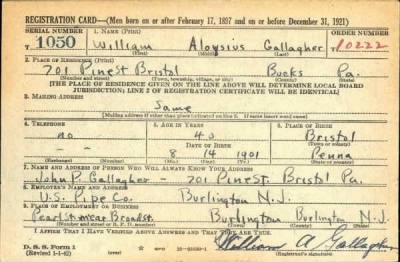 REGISTRATION CARD—(Men born on or after February 17, 1897 and on or before December 31, 1921)
SERIAL NUMBER 1. NAME (Print) ORDER NUMBER
T 1050 William Aloysius Gallagher 10222
(First) (Middle) (Last)
2. PLACE OF RESIDENCE (Print)
701 Pine St Bristol Bucks Pa.
(Number and street) (Town, township, village, or city) (County) (State)
[THE PLACE OF RESIDENCE GIVEN ON THE LINE ABOVE WILL DETERMINE LOCAL BOARD
JURISDICTION; LINE 2 OF REGISTRATION CERTIFICATE WILL BE IDENTICAL]
3. MAILING ADDRESS
Same
[Mailing address if other than place indicated on line 2. If same insert word same]
4. TELEPHONE 5. AGE IN YEARS 6. PLACE OF BIRTH
no 40 Bristol
DATE OF BIRTH (Town or county)
8 14 1901 Penna
(Exchange) (Number) (Mo.) (Day) (Yr.) (State or country)
7. NAME AND ADDRESS OF PERSON WHO WILL ALWAYS KNOW YOUR ADDRESS
John P. Gallagher - 701 Pine St. Bristol Pa.
8. EMPLOYER'S NAME AND ADDRESS
U.S. Pipe Co. Burlington N.J.
9. PLACE OF EMPLOYMENT OR BUSINESS
Pearl St near Broad St. Burlington Burlington N.J.
(Number and street or R. F. D. number) (Town) (County) (State)
I AFFIRM THAT I HAVE VERIFIED ABOVE ANSWERS AND THAT THEY ARE TRUE.
D. S. S. Form 1
(Revised 1-1-42)
William A Gallagher
(Registrant's signature)